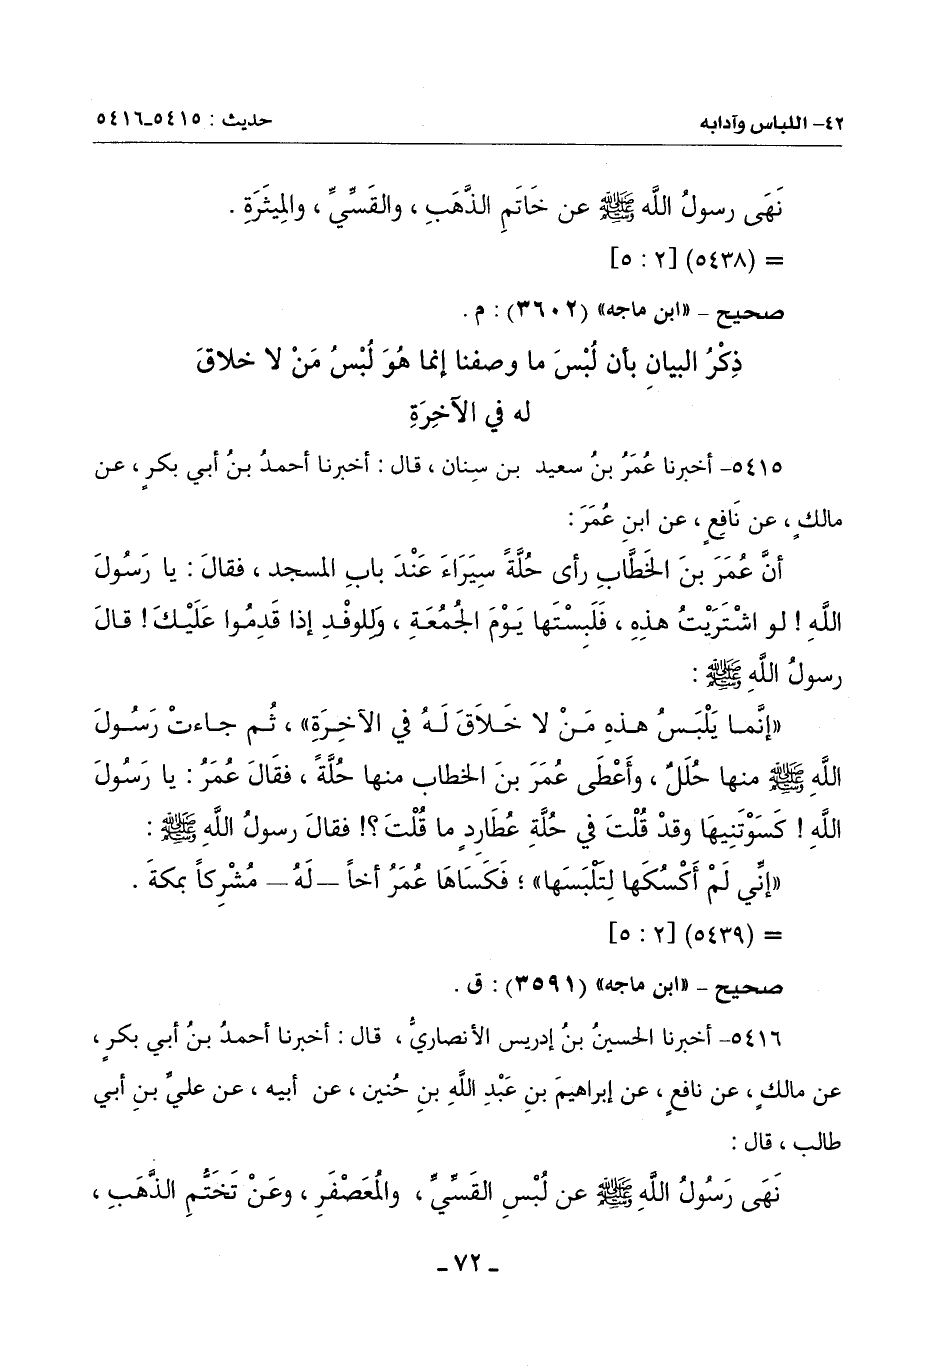 ٤٢- اللباس وآدابه حديث : ٥٤١٥-٥٤١٦
نَهَى رسولُ اللَّه ﷺ عن خَاتَمِ الذَّهَبِ ، والقَسِّيِّ ، والمِيثَرَةِ .
= (٥٤٣٨) [٢ : ٥]
صحيح - «ابن ماجه» (٣٦٠٢) : م .
ذِكْرُ البيانِ بأن لُبْسَ ما وصفنا إنما هُوَ لُبْسُ مَنْ لا خلاقَ
له في الآخِرَةِ
٥٤١٥- أخبرنا عُمَرُ بنُ سعيد بن سِنان ، قال : أخبرنا أحمدُ بنُ أبي بكرٍ ، عن
مالكٍ ، عن نَافعٍ ، عن ابنِ عُمَرَ :
أنَّ عُمَرَ بنَ الخَطَّابِ رأى حُلَّةً سِيَرَاءَ عَنْدَ بابِ المسجد ، فقالَ : يا رَسُولَ
اللَّهِ ! لو اشْتَرَيْتُ هذهِ ، فَلَبِسْتَها يَوْمَ الجُمُعَةِ ، وَللوفْدِ إذا قَدِمُوا عَلَيْكَ ! قالَ
رسولُ اللَّهِ ﷺ :
«إنَّمـا يَلْبَـسُ هـذهِ مَـنْ لا خَـلاَقَ لَـهُ في الآخِـرَةِ» ، ثُـم جـاءتْ رَسُـولَ
اللَّهِ ﷺ منها حُلَلٌ ، وأَعْطَى عُمَرَ بنَ الخطاب منها حُلَّةً ، فقَالَ عُمَرُ : يا رَسُولَ
اللَّهِ ! كَسَوْتَنِيهَا وقدْ قُلْتَ في حُلَّةِ عُطَاردٍ ما قُلْتَ ؟! فقالَ رسولُ اللَّهِ ﷺ :
«إنِّي لَمْ أَكْسُكَها لِتَلْبَسَها» ؛ فَكَسَاهَا عُمَرُ أخاً –لَهُ– مُشْرِكاً بمكةَ .
= (٥٤٣٩) [٢ : ٥]
صحيح - «ابن ماجه» (٣٥٩١) : ق .
٥٤١٦- أخبرنا الحسينُ بنُ إدريس الأنصاريُّ ، قال : أخبرنا أحمدُ بنُ أبي بكرٍ ،
عن مالكٍ ، عن نافعٍ ، عن إبراهيمَ بنِ عَبْدِ اللَّهِ بنِ حُنين ، عن أبيه ، عن عليِّ بنِ أبي
طالب ، قال :
نَهَى رَسُولُ اللَّهِ ﷺ عن لُبْسِ القَسِّيِّ ، والمُعَصْفَرِ ، وعَنْ تَخَتُّمِ الذَّهَبِ ،
- ٧٢ -